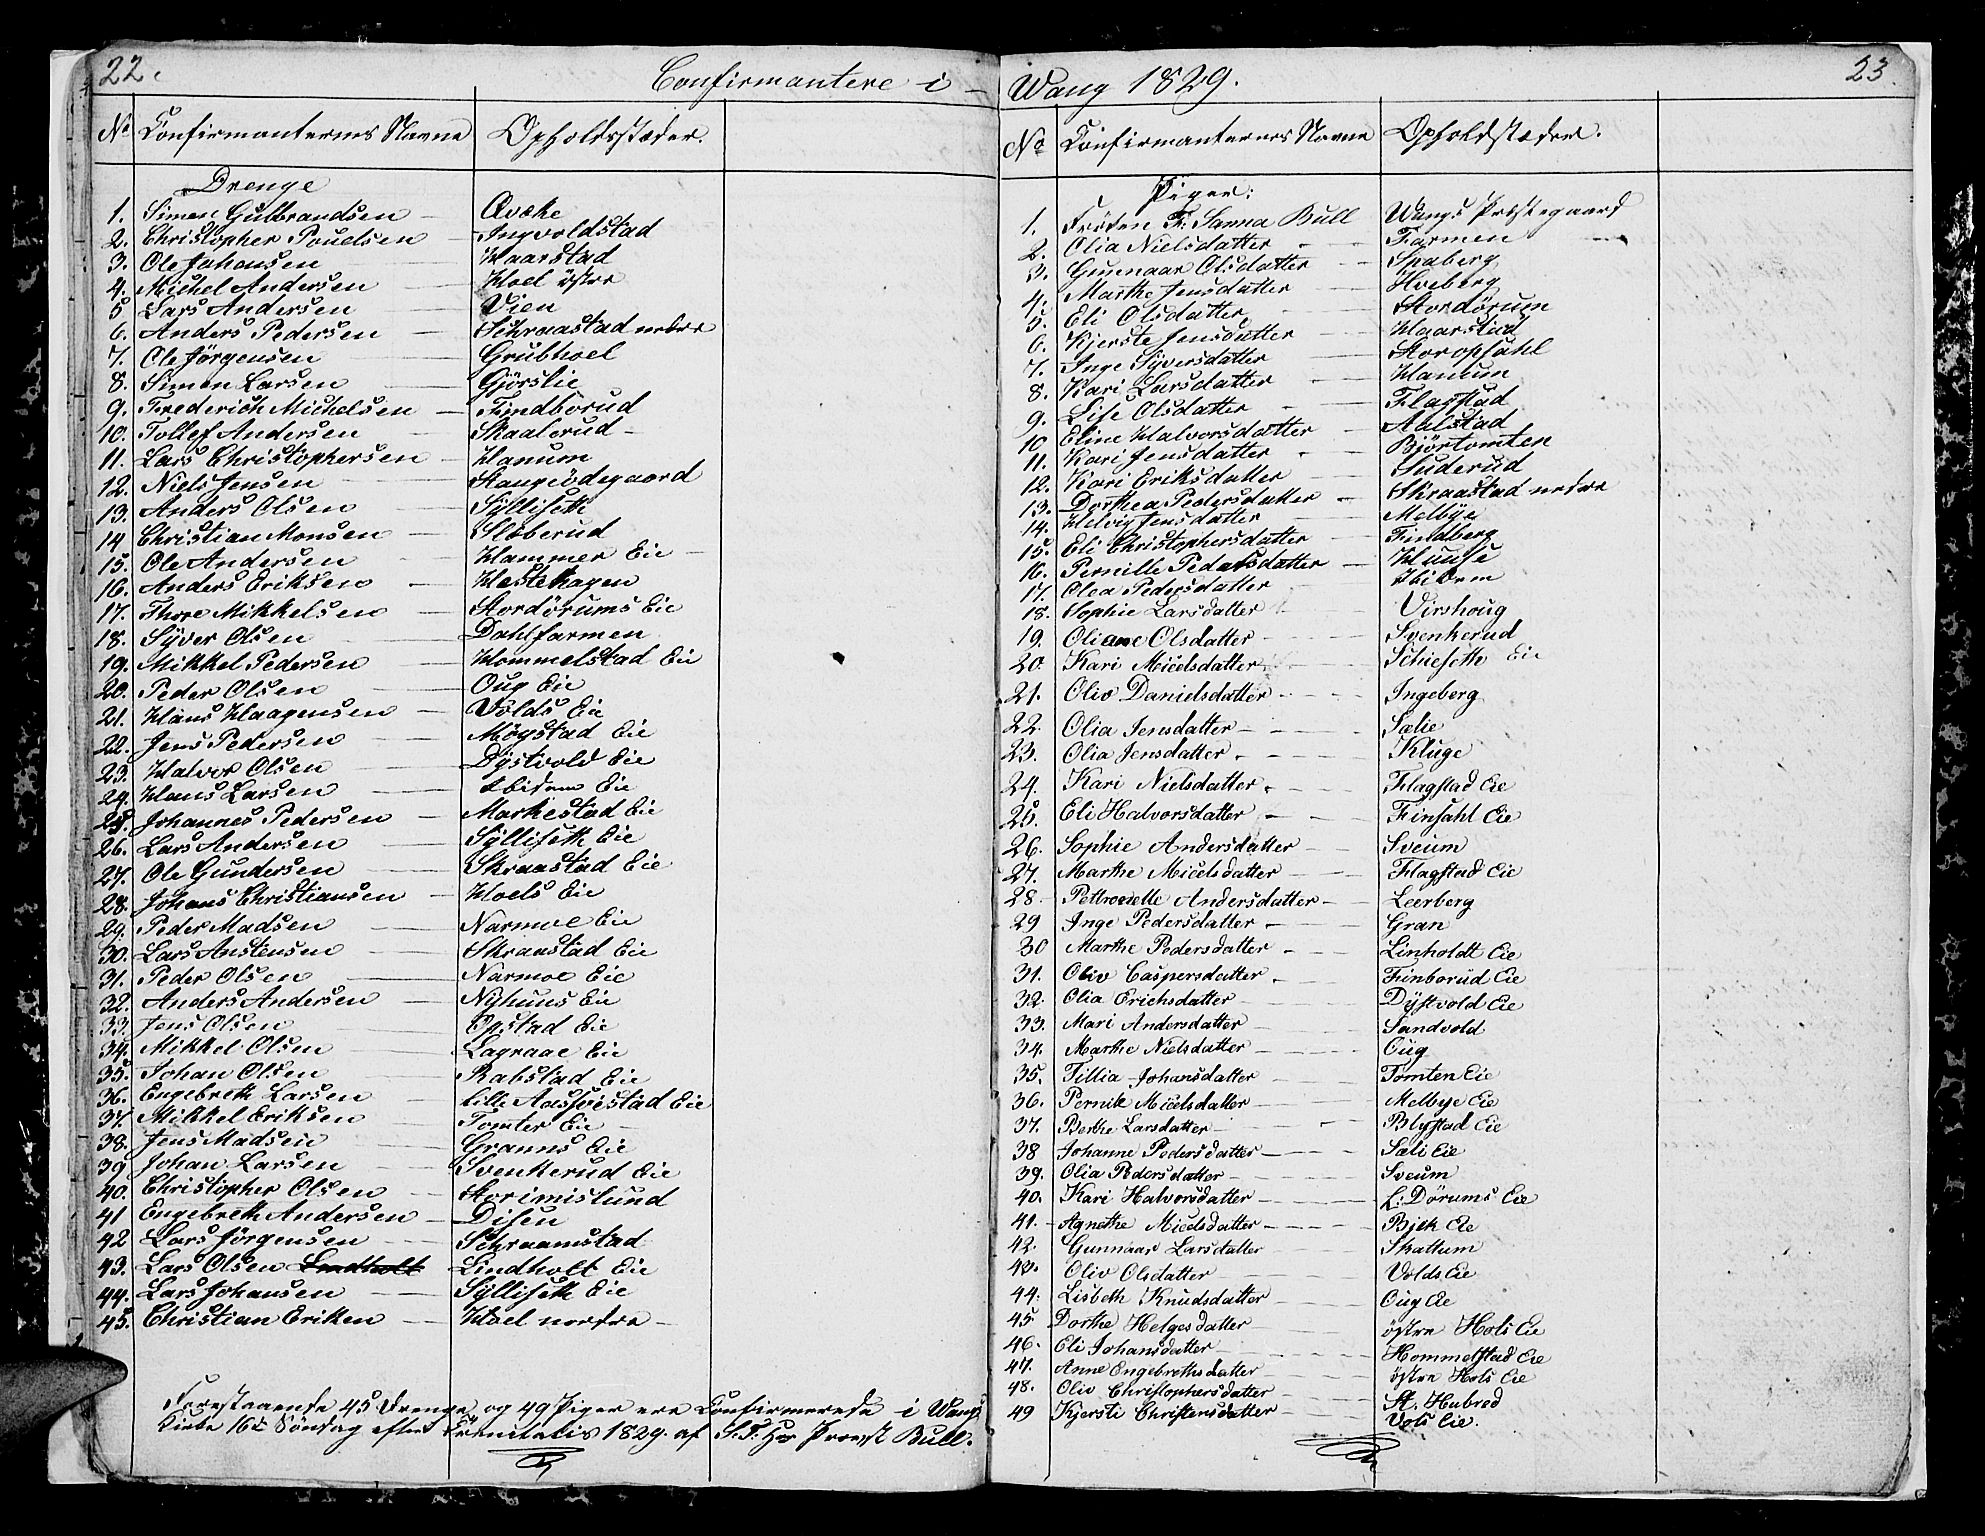 22.
Confirmantere i
No Confirmanternes Navne Opholdsstæder.
Drenge
1. Simen Gulbrandsen
2. Christopher Pouelsen Ingvoldstad
3. Ole Johansen Haarstad
4. Michel Andersen Hoel östre
5 Lars Andersen Vien
6. Anders Pedersen Schraastad nedre
7. Ole Jörgensen Grubhoel
8. Simen Larsen Gjörslie
9. Frederich Michelsen Findborud
10. Tollef Andersen Skaalerud
11. Lars Christophersen Hanum
12. Niels Jensen Stangeödegaard
13. Anders Olsen Syllisetk
14 Christian Monsen Sloberud
15. Ole Andersen Hammer Eie
16. Anders Eriksen Hestehagen
17. Thore Mikkelsen Stordörums Eie
18. Syver Olsen Dahlfarmen
19. Mikkel Pedersen Hommelstad Eie
20. Peder Olsen Oug Eie
21. Hans Haagensen Volds Eie
22. Jens Pedersen Mögstad Eie
23. Halvor Olsen Dystvold Eie
24. Hans Larsen Ibidem Eie
25. Johannes Pedersen Markestad Eie
26. Lars Andersen Sylliseth Eie
27. Ole Gundersen Skraastad Eie
28. Johans Christiansen Hoels Eie
29. Peder Madsen Narmoe Eie
30. Lars Anstensen Skraastad Eie
31. Peder Olsen Narmoe Eie
32. Anders Andersen Nyhuus Eie
33. Jens Olsen Opstad Eie
34. Mikkel Olsen Lagraae Eie
35. Johan Olsen Rabstad Eie
36. Engebreth Larsen Lille Eie
37. Mikkel Eriksen Tomter Eie
38. Jens Madsen Granns Eie
39 Johan Larsen Svenkerud Eie
40. Christopher Olsen Storimislund
41 Engebreth Andersen Disen
42 Lars Jörgensen Schraamstad
43. Lars Olsen Lindholt Lindholt Eie
44. Lars Johansen Sylliseth Eie
45. Christian Eriken Hoel nordre
Forestaaende 45 Drenge og 49 Piger ere Confirmerede i Wangs
Kirke 16de Söndag efter Trinitatis 1829. af S. T. Hr Provst Bull.
Wang 1829.
23.
No Confirmanternes Navne Opholdstæder.
Piger:
1. Fröken F: Sanna Bull Wangs Præstegaard
2. Olia Nielsdatter Farmen
3. Gunenaar Olsdatter Spaberg
4. Marthe Jensdatter Hoeberg
5. Eli Olsdatter Stordörum
6. Kjerste Jensdatter Haarstad
7. Inge Syversdatter Storopsahl
8. Kari Larsdatter Hanum
9. Lise Olsdatter Flagstad
10 Eline Halvorsdatter Aalstad
11. Kari Jensdatter Björtomten
12. Kari Eriksdatter Suderud
13. Dorthea Pedersdatter Skraastad nedre
14. Helvig Jensdatter Melbye
15. Eli Christophersdatter Findberg
16. Pernille Pedersdatter Hunse
17. Olea Pedersdatter Ibidem
18. Sophie Larsdatter Virshoug
19. Oliane Olsdatter Svenkerud
20. Kari Micelsdatter Schieseth Eie
21. Oliv Danielsdatter Ingeberg
22. Olia Jensdatter Sælie
23. Olia Jensdatter Kluge
24. Kari Nielsdatter Flagstad Eie
25. Eli Halvorsdatter Finsahl Eie
26. Sophie Andersdatter Sveum
27. Marthe Micelsdatter Flagstad Eie
28. Pettronelle Andersdatter Leerberg
29 Inge Pedersdatter Gran
30 Marthe Pedersdatter Linholdt Eie
31. Oliv Caspersdatter Finborud Eie
32. Olia Erichsdatter Dystvold Eie
33. Mari Andersdatter Sandvold
34. Marthe Nielsdatter Oug
35. Tillia Johansdatter Tomten Eie
36. Pernile Micelsdatter Melbye Eie
37. Berthe Larsdatter Blystad Eie
38 Johanne Pedersdatter Sæli Eie
39. Olia Pedersdatter Sveum
40. Kari Halvorsdatter L: Dörums Eie
41. Agnethe Micelsdatter Bjek Eie
42. Gunnaar Larsdatter Skattum
43. Oliv Olsdatter Volds Eie
44. Lisbeth Knudsdatter Oug Eie
45 Dorthe Helgesdatter östre Hols Eie
46. Eli Johansdatter Hommelstad Eie
47. Anne Engebrethsdatter östre Hols Eie
48. Oliv Christophersdatter St. Hubred
49 Kjersti Christensdatter Vols Eie.